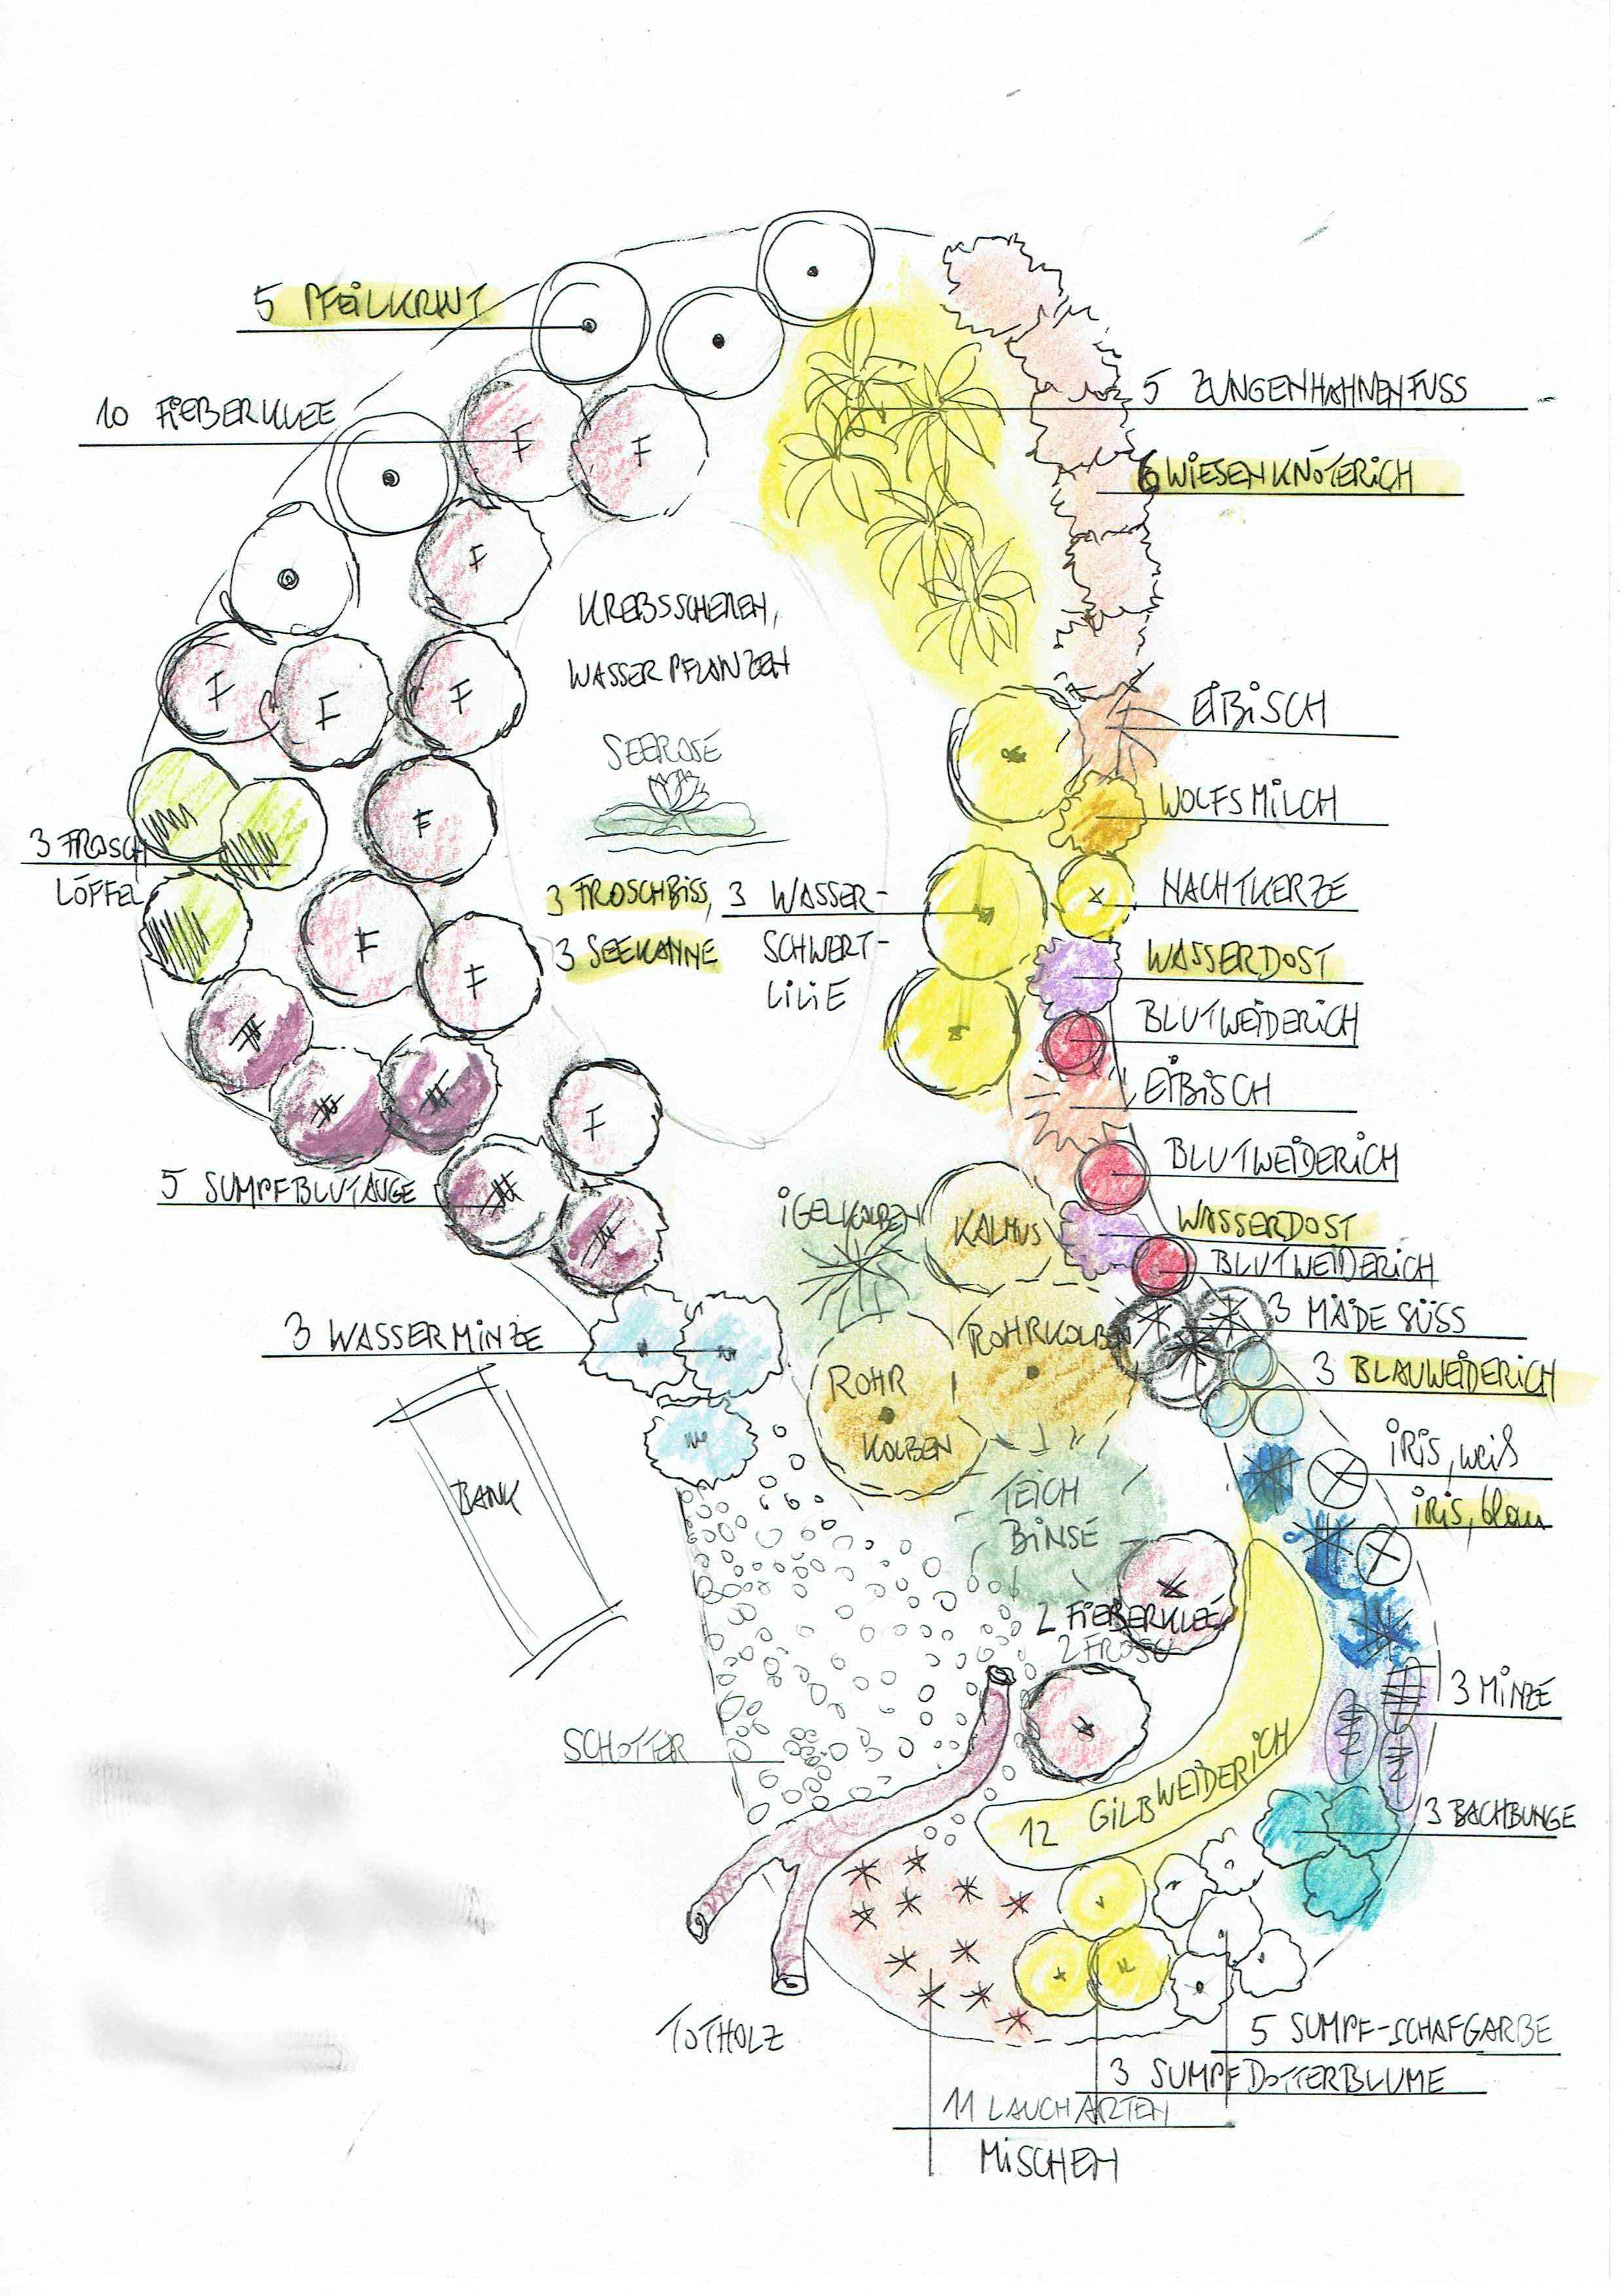 5 PFEILKRAUT
10 FIEBERKLEE
5 ZUNGENHAHNENFUSS
6 WIESENKNÖTERICH
F
F
F
F
F
F
F
F
F
F
KREBSSCHEREN,
WASSERPFLANZEN
SEEROSE
EIBISCH
WOLFSMILCH
3 FROSCH
LÖFFEL
3 FROSCHBISS, 3 WASSER-
3 SEEKANNE SCHWERT-
LILIE
NACHTKERZE
WASSERDOST
BLUTWEIDERICH
EIBISCH
BLUTWEIDERICH
5 SUMPFBLUTAUGE
IGELKOLBEN
KALMUS
WASSERDOST
BLUTWEIDERICH
3 WASSERMINZE
ROHRKOLBEN
3 MÄDESÜSS
ROHR
KOLBEN
3 BLAUWEIDERICH
BANK
TEICH
BINSE
IRIS, weiß
IRIS, blau
2 FIEBERKLEE
2 FROSCH
3 MINZE
SCHOTTER
12 GILBWEIDERICH
3 BACHBUNGE
TOTHOLZ
5 SUMPF-SCHAFGARBE
3 SUMPFDOTTERBLUME
11 LAUCHARTEN
MISCHEN